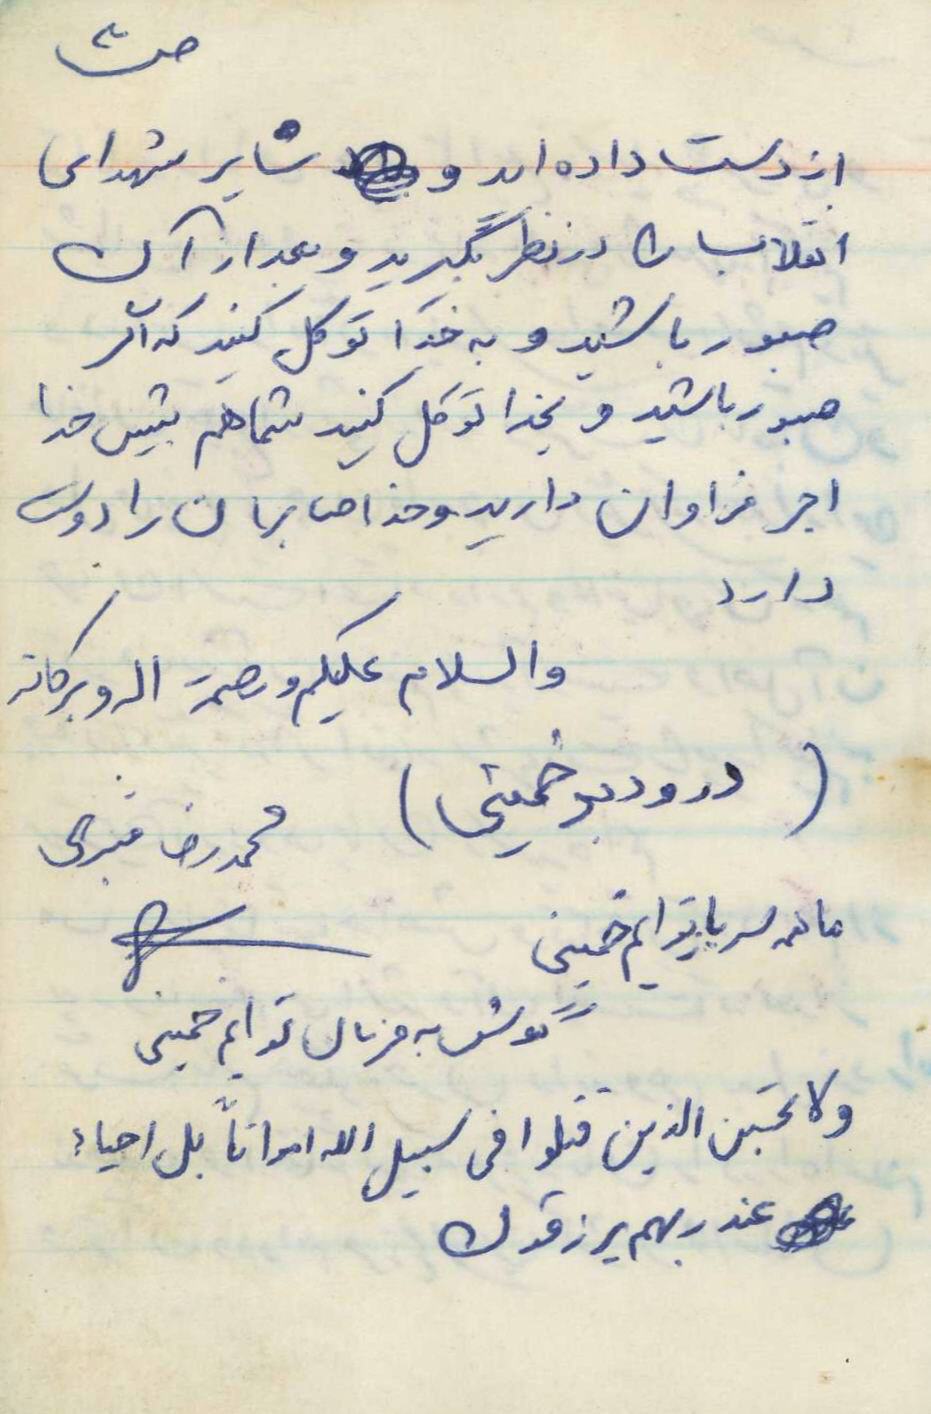 ص ۳
از دست داده اند و شایر شهدای
انقلاب را در نظر بگیرید و بعد از آن
صبور باشید و به خدا توکل کنید که اگر
صبور باشید و بخدا توکل کنید شما هم پیش خدا
اجر فراوان دارید و خدا صابران را دوست
دارد
والسلام علیکم و رحمة اله و برکاته
(درود بر خمینی)
محمد رضا قنبری
ما همه سرباز توایم خمینی
گوش به فرمان توایم خمینی
ولا تحسبن الذین قتلوا فی سبیل الله امواتاً بل احیاء
عند ربهم یرزقون